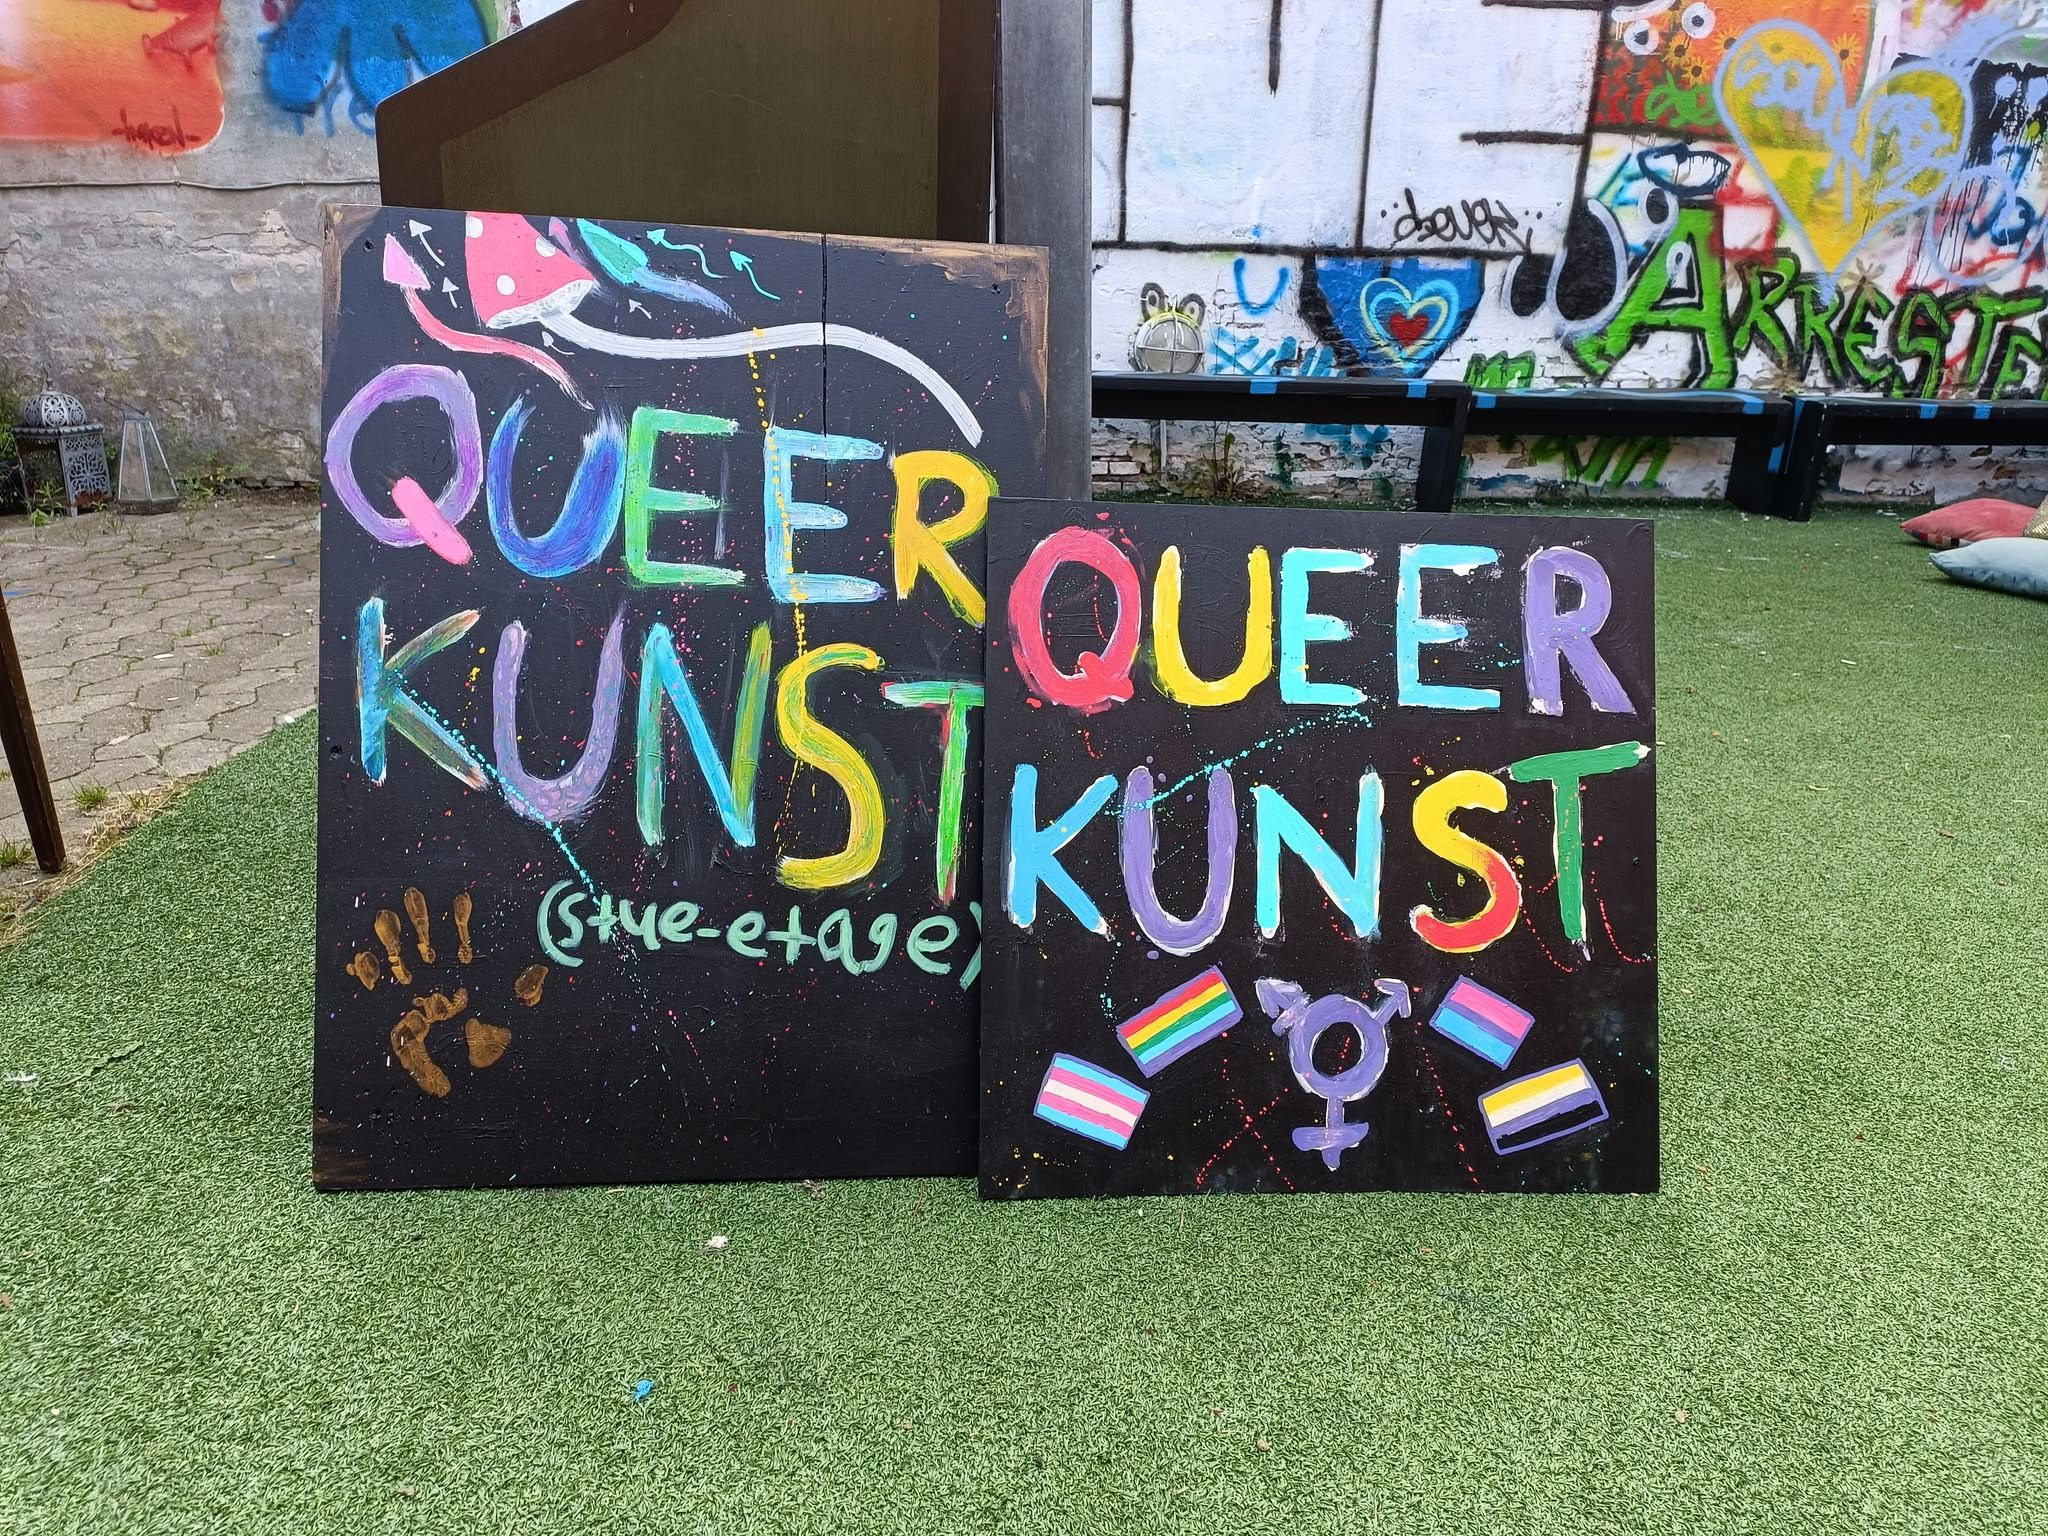 QUEER
KUNST
(stue-etage)
QUEER
KUNST
ARRESTE